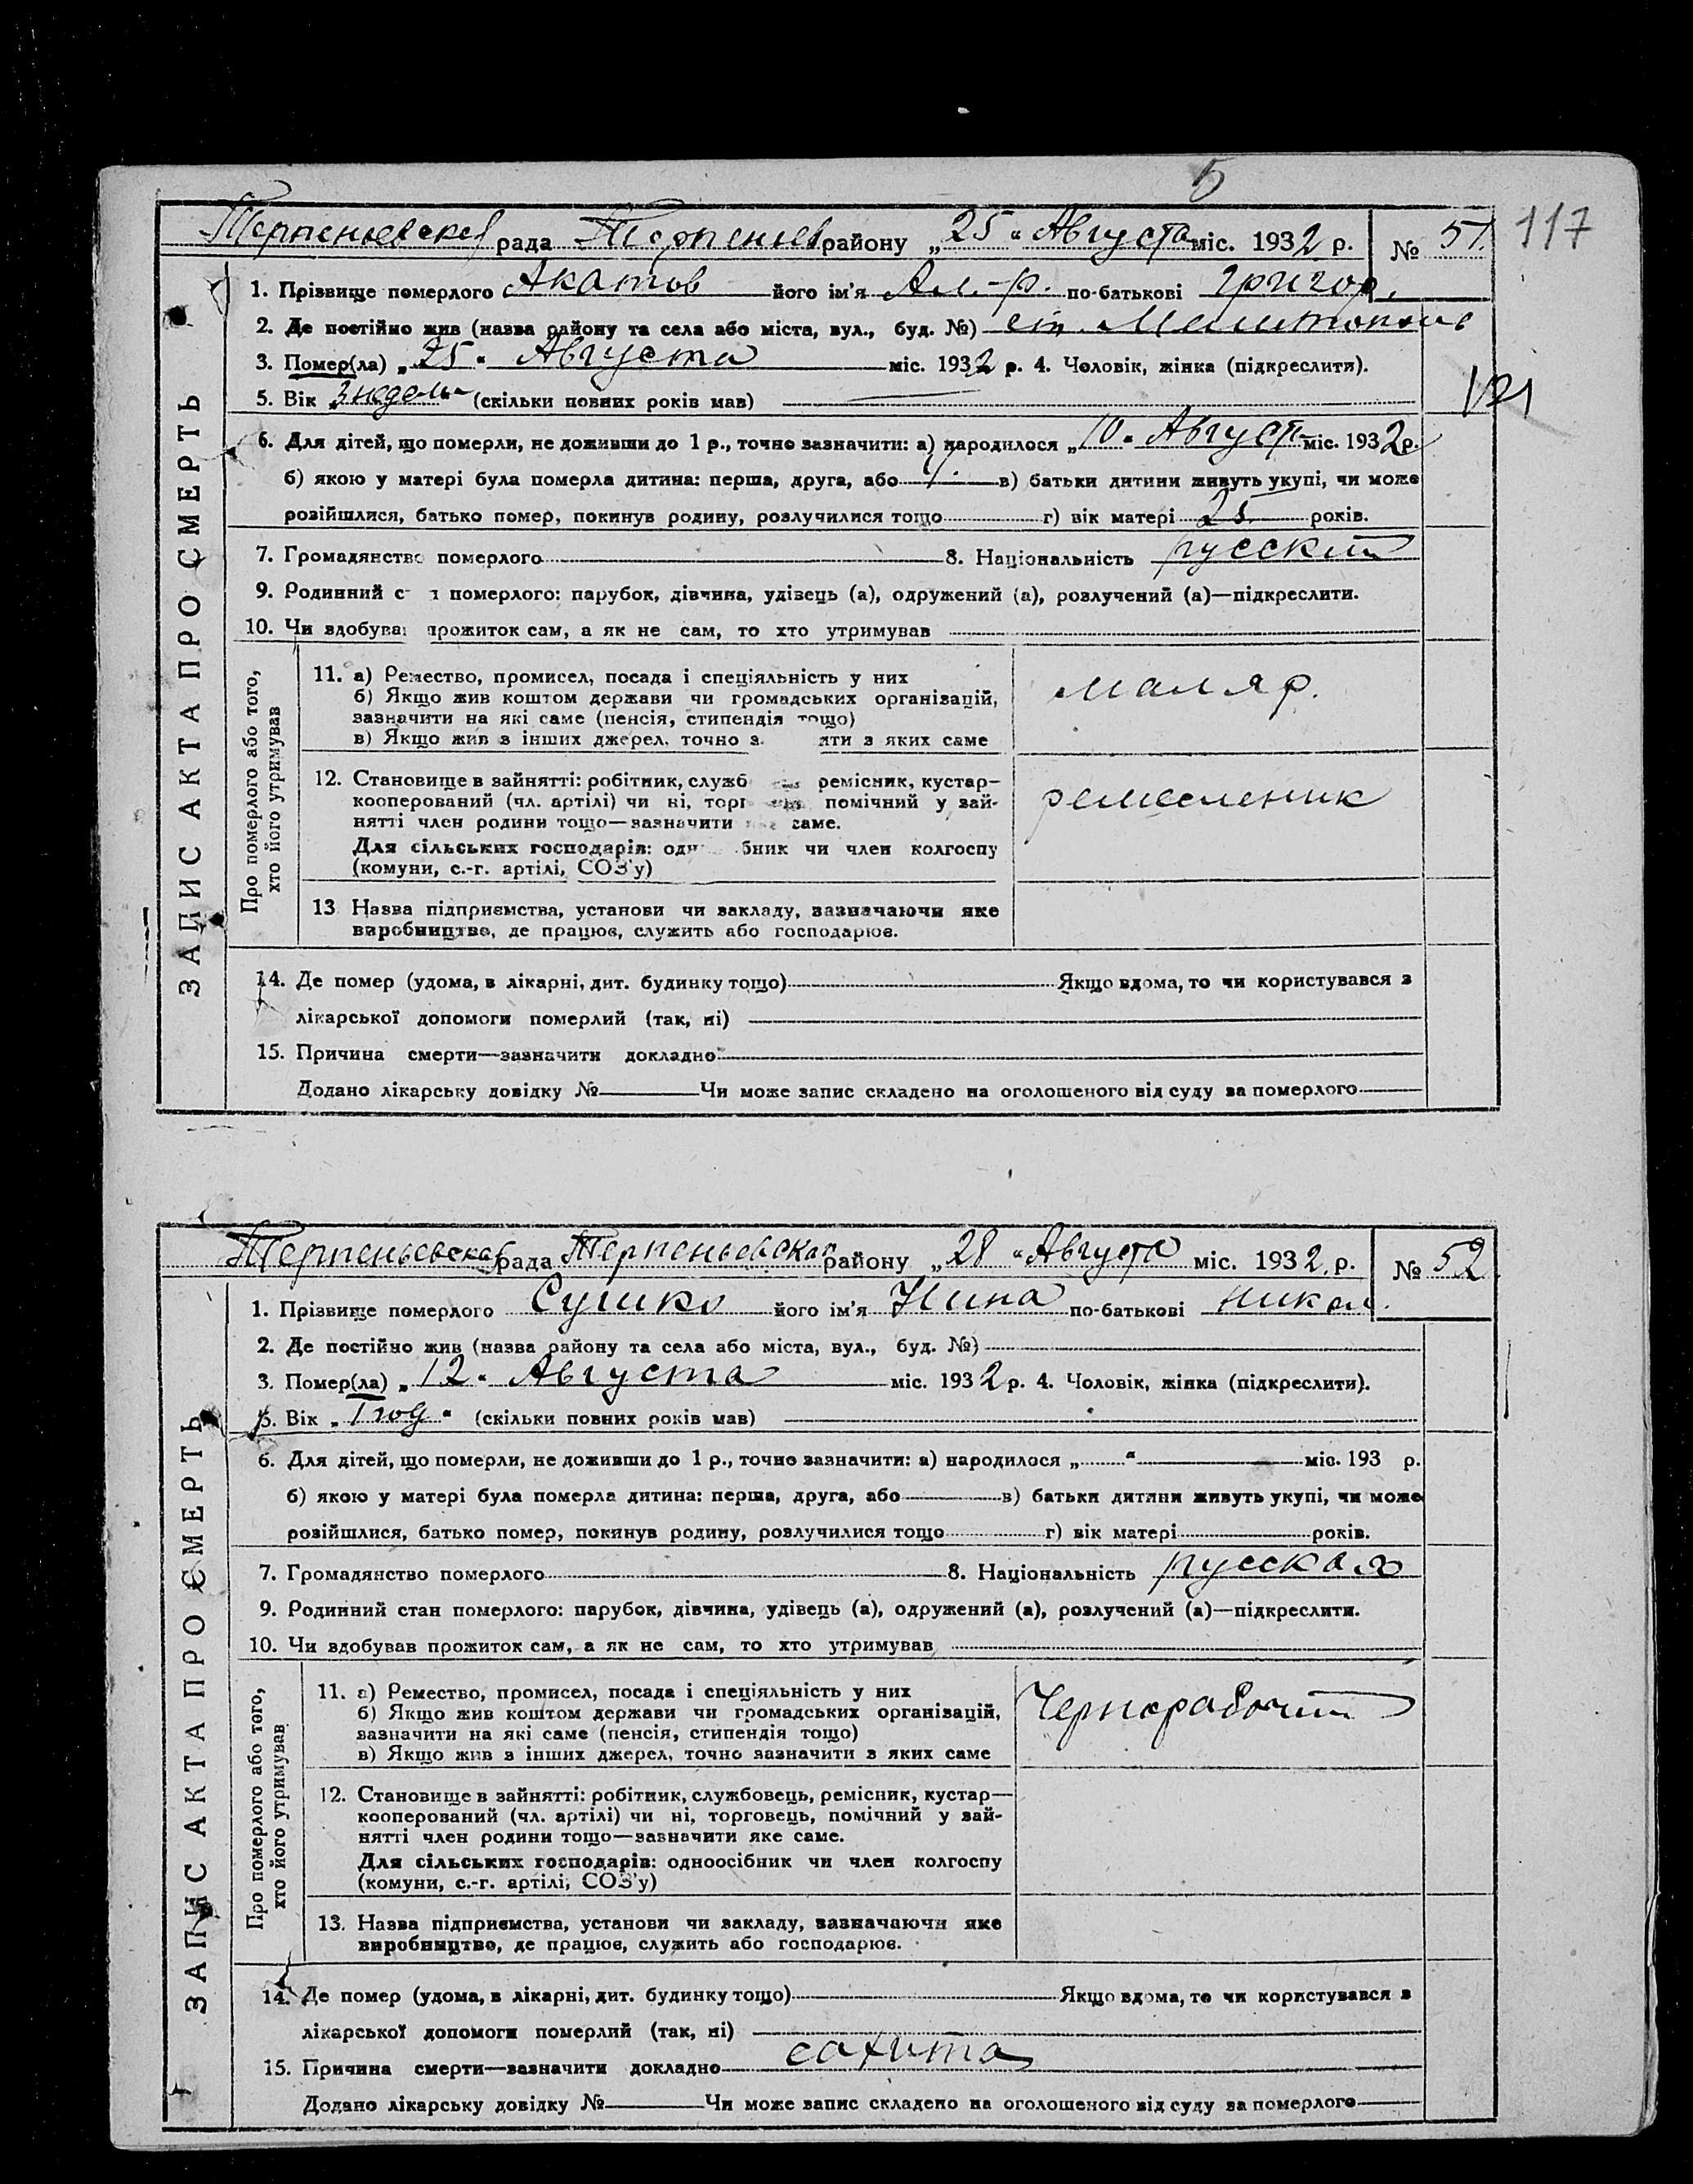 5
Терпеньевская рада Терпеньев району „25“ Августа міс. 1932 р. № 51
117
1. Прізвище померлого Акатов його ім'я Ал-р. по-батькові Григор.
2. Де постійно жив (назва району та села або міста, вул., буд. №) ст. Мелитополь
3. Помер(ла) „25“ Августа міс. 1932 р. 4. Чоловік, жінка (підкреслити).
5. Вік „3 недели“ (скільки повних років мав)
6. Для дітей, що померли, не доживши до 1 р., точно зазначити: а) народилося „10“ Августа міс. 1932 р.
б) якою у матері була померла дитина: перша, друга, або в) батьки дитини живуть укупі, чи може
розійшлися, батько помер, покинув родину, розлучилися тощо г) вік матері 25 років.
7. Громадянство померлого 8. Національність русский
9. Родинний с н померлого: парубок, дівчина, удівець (а), одружений (а), розлучений (а)—підкреслити.
10. Чи здобува прожиток сам, а як не сам, то хто утримував
ЗАПИС АКТА ПРО СМЕРТЬ
Про померлого або того,
хто його утримував
11. а) Ремество, промисел, посада і спеціяльність у них
б) Якщо жив коштом держави чи громадських організацій,
зазначити на які саме (пенсія, стипендія тощо)
в) Якщо жив з інших джерел, точно з яти з яких саме
маляр.
12. Становище в зайнятті: робітник, служб ремісник, кустар—
кооперований (чл. артілі) чи ні, торг помічний у зай-
нятті член родини тощо—зазначити саме.
Для сільських господарів: одн бник чи член колгоспу
(комуни, с.-г. артілі, СОЗ'у)
ремесленник
13. Назва підприємства, установи чи закладу, зазначаючи яке
виробництво, де працює, служить або господарює.
14. Де помер (удома, в лікарні, дит. будинку тощо) Якщо вдома, то чи користувався з
лікарської допомоги померлий (так, ні)
15. Причина смерти—зазначити докладно
Додано лікарську довідку № Чи може запис складено на оголошеного від суду за померлого
Терпеньевская рада Терпеньевская району „28“ Августа міс. 1932 р. № 52
1. Прізвище померлого Сушко його ім'я Нина по-батькові Никол.
2. Де постійно жив (назва району та села або міста, вул., буд. №)
3. Помер(ла) „12“ Августа міс. 1932 р. 4. Чоловік, жінка (підкреслити).
5. Вік „1 год“ (скільки повних років мав)
6. Для дітей, що померли, не доживши до 1 р., точно зазначити: а) народилося „ “ міс. 193 р.
б) якою у матері була померла дитина: перша, друга, або в) батьки дитини живуть укупі, чи може
розійшлися, батько помер, покинув родину, розлучилися тощо г) вік матері років.
7. Громадянство померлого 8. Національність русская
9. Родинний стан померлого: парубок, дівчина, удівець (а), одружений (а), розлучений (а)—підкреслити.
10. Чи здобував прожиток сам, а як не сам, то хто утримував
ЗАПИС АКТА ПРО СМЕРТЬ
Про померлого або того,
хто його утримував
11. а) Ремество, промисел, посада і спеціяльність у них
б) Якщо жив коштом держави чи громадських організацій,
зазначити на які саме (пенсія, стипендія тощо)
в) Якщо жив з інших джерел, точно зазначити з яких саме
Чернорабочий
12. Становище в зайнятті: робітник, службовець, ремісник, кустар—
кооперований (чл. артілі) чи ні, торговець, помічний у зай-
нятті член родини тощо—зазначити яке саме.
Для сільських господарів: одноосібник чи член колгоспу
(комуни, с.-г. артілі, СОЗ'у)
13. Назва підприємства, установи чи закладу, зазначаючи яке
виробництво, де працює, служить або господарює.
14. Де помер (удома, в лікарні, дит. будинку тощо) Якщо вдома, то чи користувався з
лікарської допомоги померлий (так, ні)
15. Причина смерти—зазначити докладно
Додано лікарську довідку № Чи може запис складено на оголошеного від суду за померлого